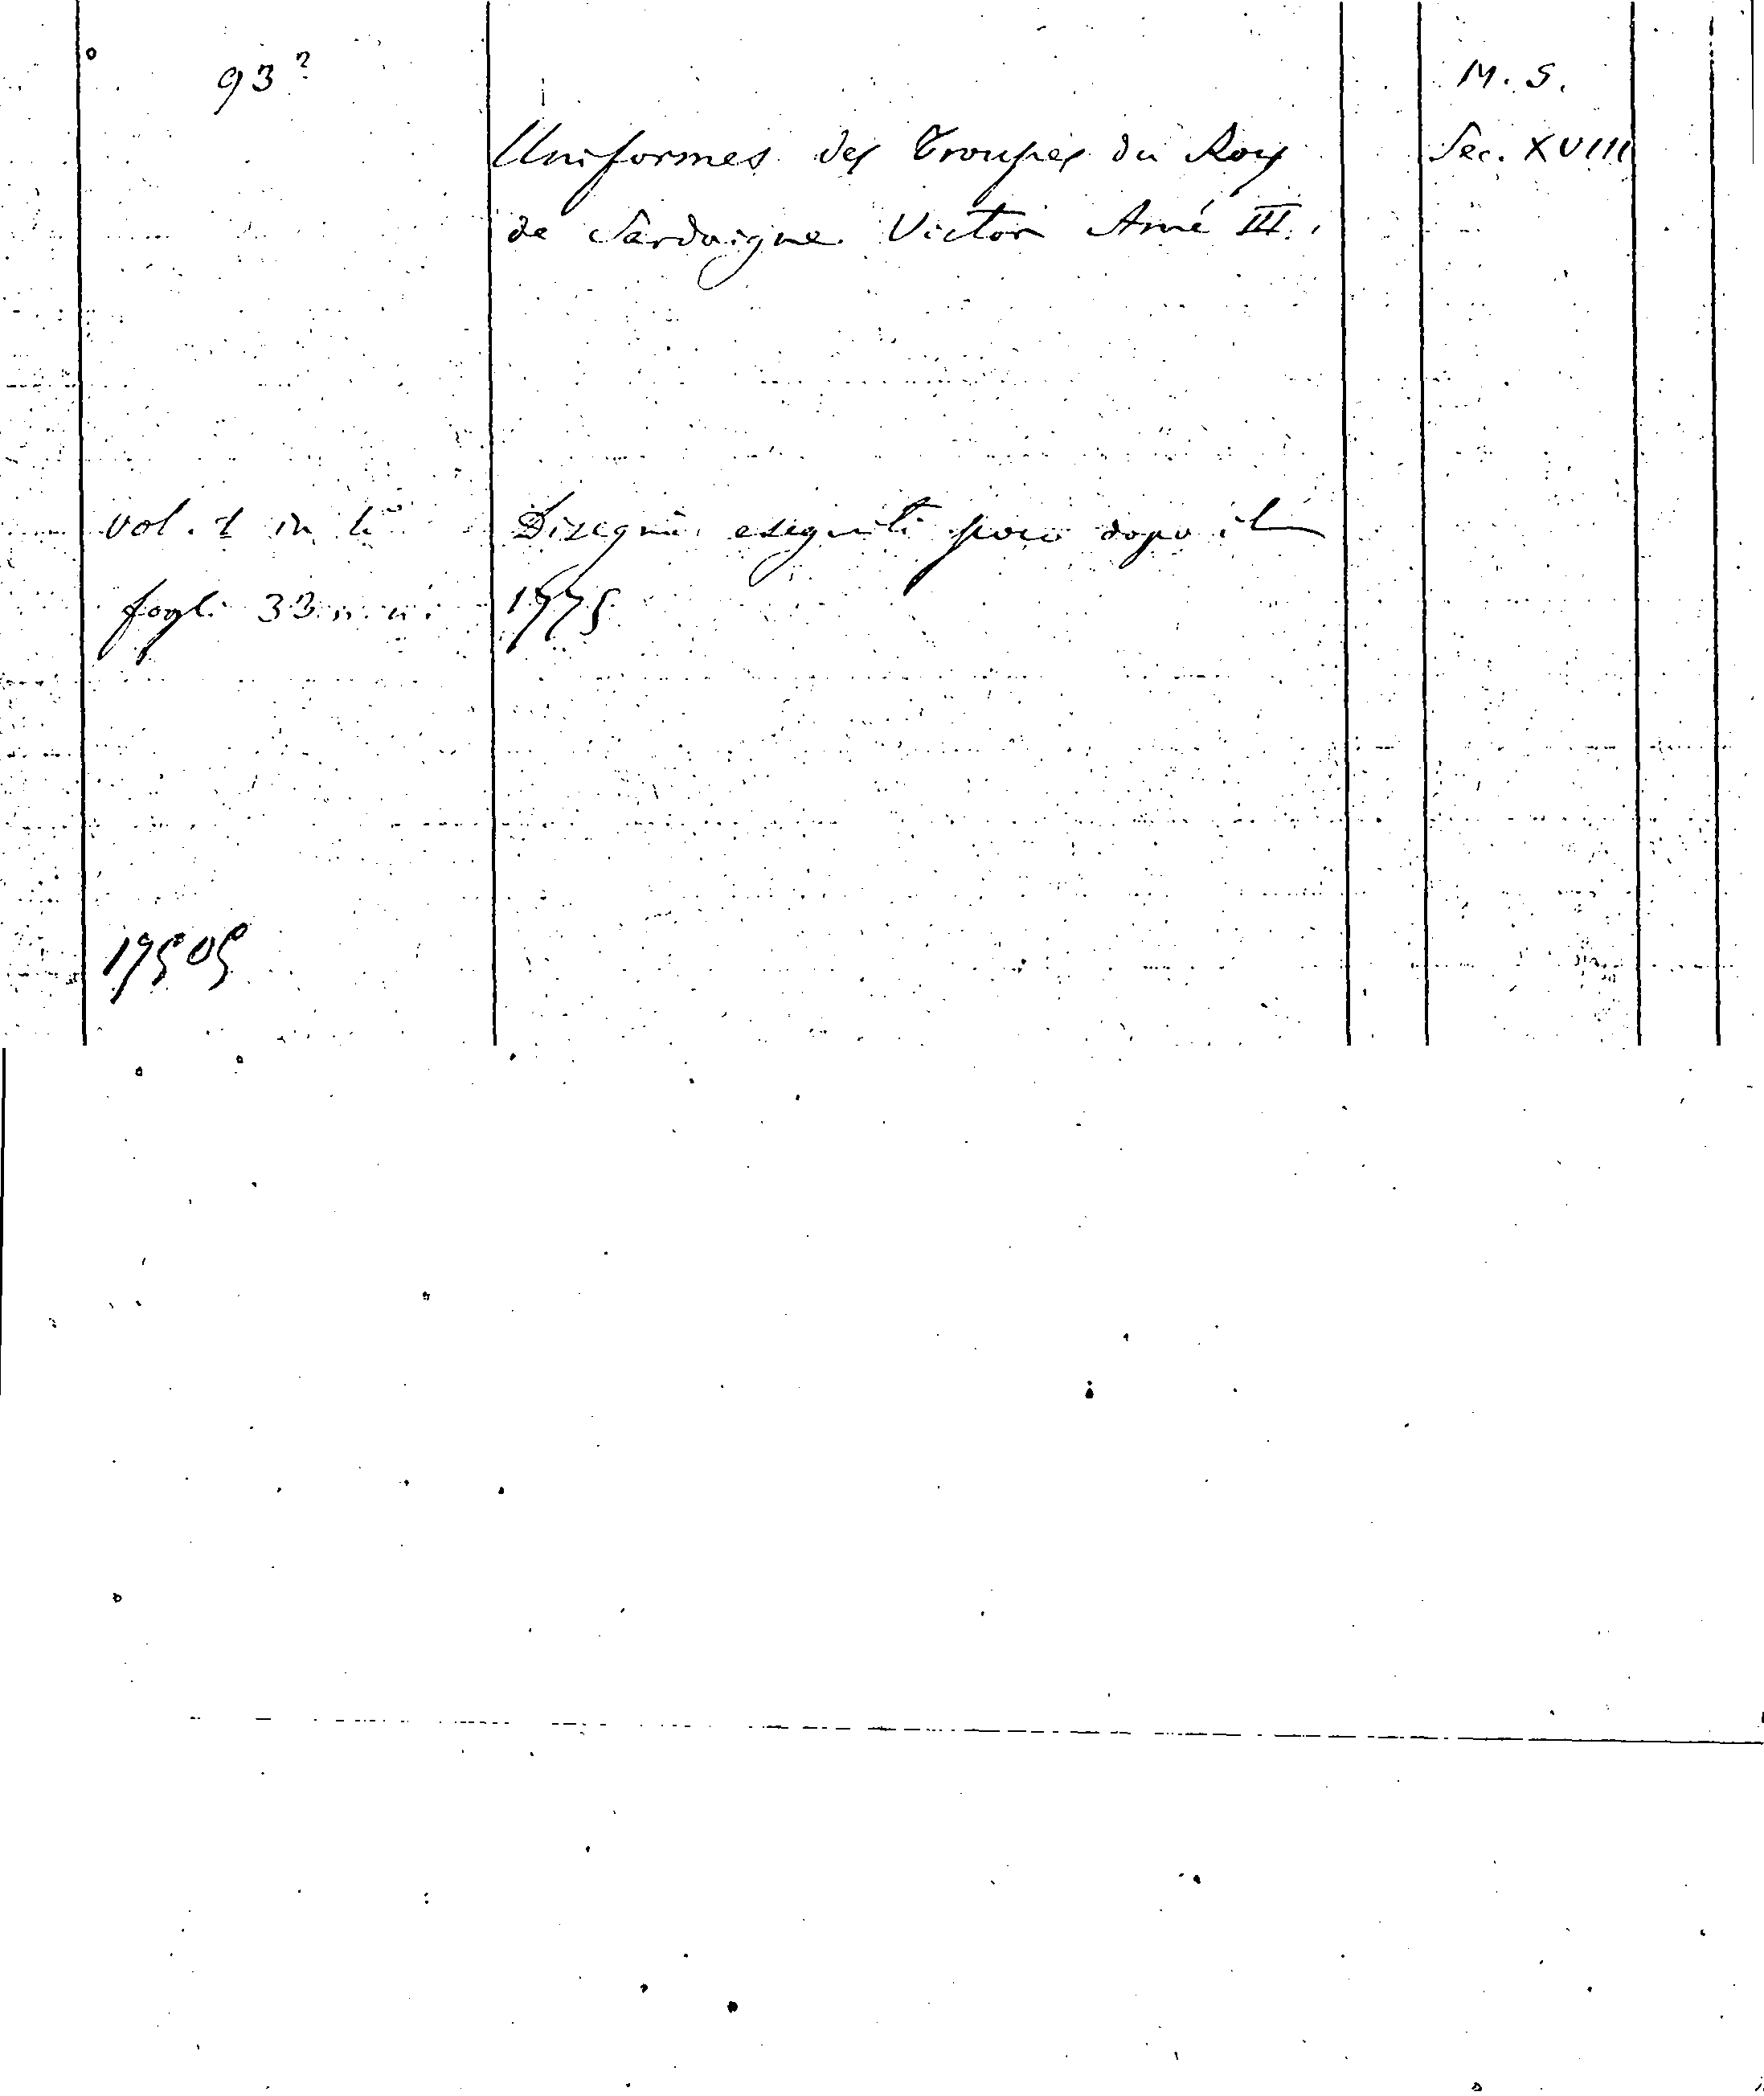 93²
M. S.
Uniformes des Troupes du Roy
Sec. XVIII
de Sardaigne Victor Amé III.
vol. 1 in 4°
Disegni eseguiti poco dopo il
fogli 33 n. n.
1775
17505